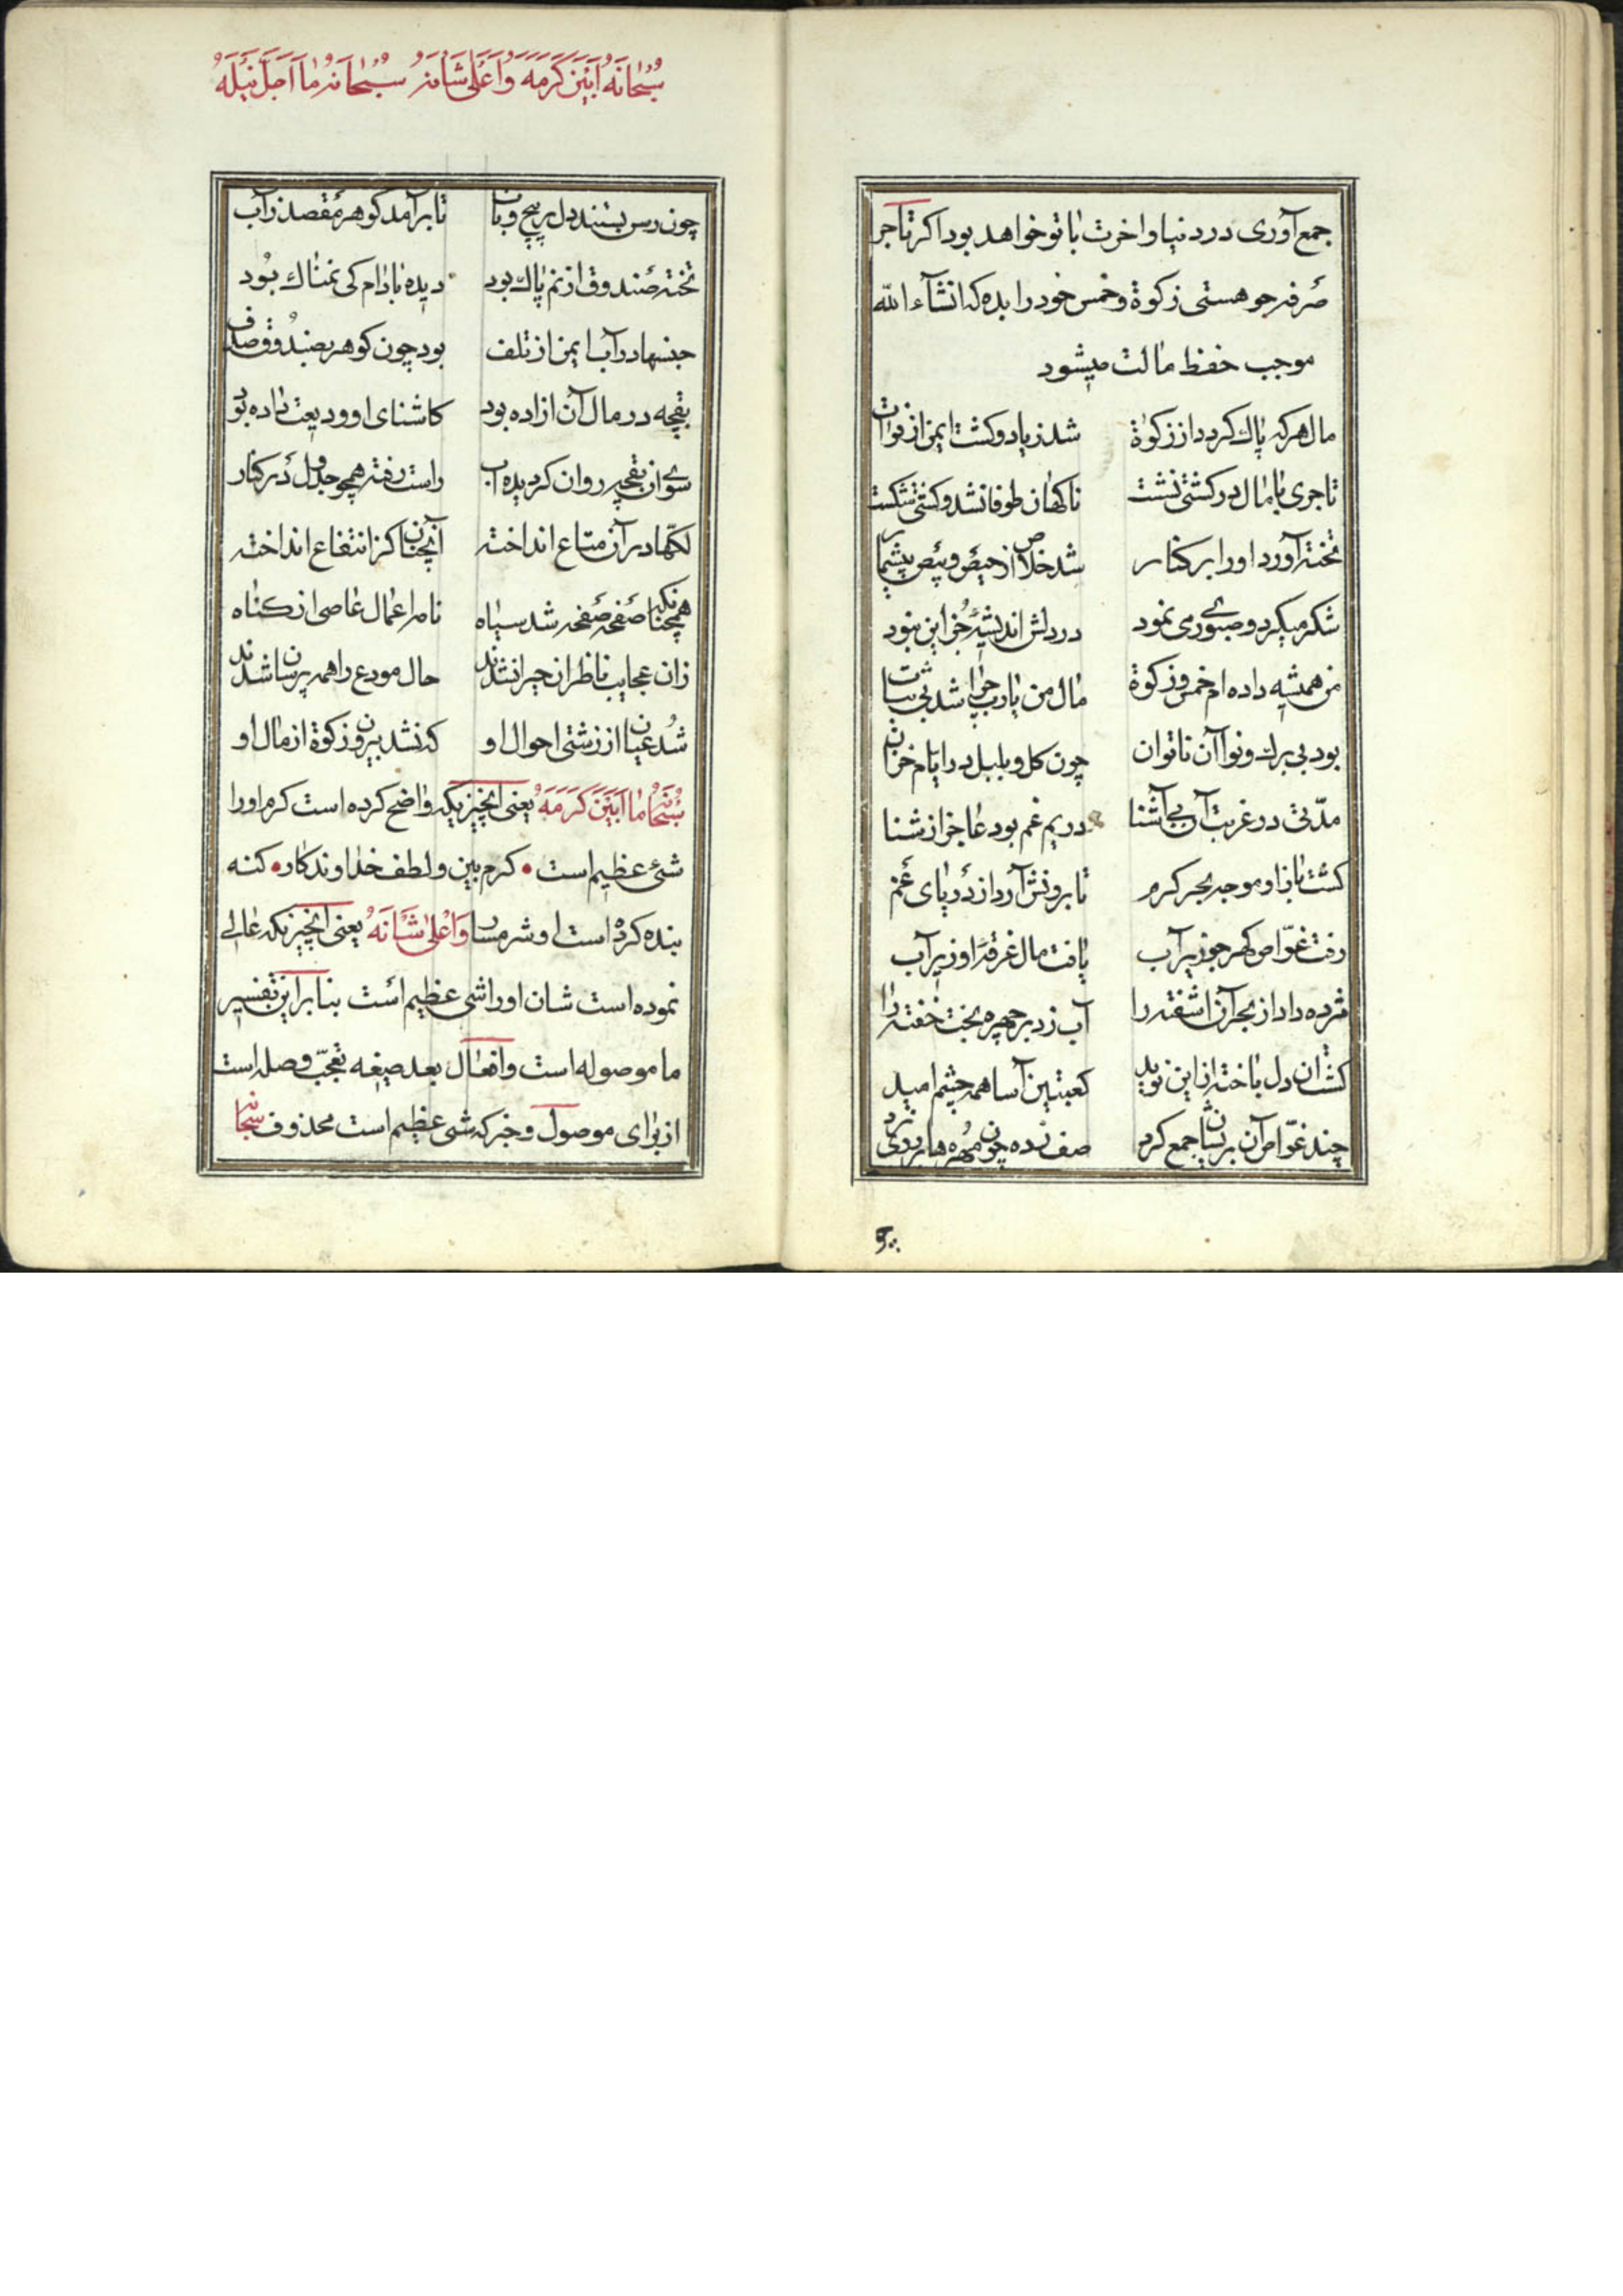 جمع آوری در دنیا و اخرت با تو خواهد بود اکر تاجر
صرفه جو هستی زکوة و خمس خود را بده که انشآء الله
موجب حفظ مالت میشود
مال هر که پاك کردد از زکوة شد زیاد و کشت ایمن از فوات
تاجری با مال در کشتی نشست ناکهان طوفان شد و کشتی شکست
تخته آورد او را بر کنار شد خلاص از حیص و بیص بیشمار
شکر میکرد و صبوری می نمود در دلش اندیشهٔ جز این نبود
من همیشه داده ام خمس و زکوة مال من یا رب چرا شد بی ثبات
بود بی برك و نوا آن ناتوان چون کل و بلبل در ایام خزان
مدّتی در غربت آن بی آشنا در یم غم بود عاجز از شنا
کشت باز او موجه بحر کرم تا برونش آرد از دریای غم
رفت غوّاص کهر جو زیر آب یافت مال غرقهٔ او زیر آب
مژده داد از بحر آن اشفته را آب زد بر چهره بخت خفته را
کشت آن دل باخته از این نوید کعبتین آسا همه چشم امید
چند غوّاص آن پریشان جمع کرد صف زده چون مهره های نرد
سبحانه ما ابین کرمه و اعلی شانه سبحانه ما اجل نیله
چون رسن بستند دل بر پیچ و تاب تا برآمد کوهر مقصد ز آب
تخته صندوق از نم پاك بود دیده بادام کی نمناك بود
جنسها در آب ایمن از تلف بود چون کوهر بصندوق صدف
بقچه در مال آن ازاده بود کاشنای او ودیعت داده بود
سوی ان بقچه روان کردیده آب راست رفته همچو جدول در کنار
لکها در آن متاع انداخته آنچنان کز انتفاع انداخته
همچنانکه صفحه صفحه شد سیاه نامه اعمال عاصی از کناه
زان عجایب ناظران حیران شدند حال مودع را همه پرسان شدند
شد عیان از زشتی احوال او که نشد بیرون زکوة از مال او
سبحانه ما ابین کرمه یعنی انچیزیکه واضح کرده است کرم او را
شیئ عظیم است • کرم بین و لطف خداوندکار • کنه
بنده کرده است او شرمسار و اعلی شانه یعنی انچیزیکه عالی
نموده است شان او را شی عظیم است بنابراین تفسیر
ما موصوله است و افعال بعد صیغه تعجّب و صله است
از برای موصول و خبر که شی عظیم است محذوف سبحانه